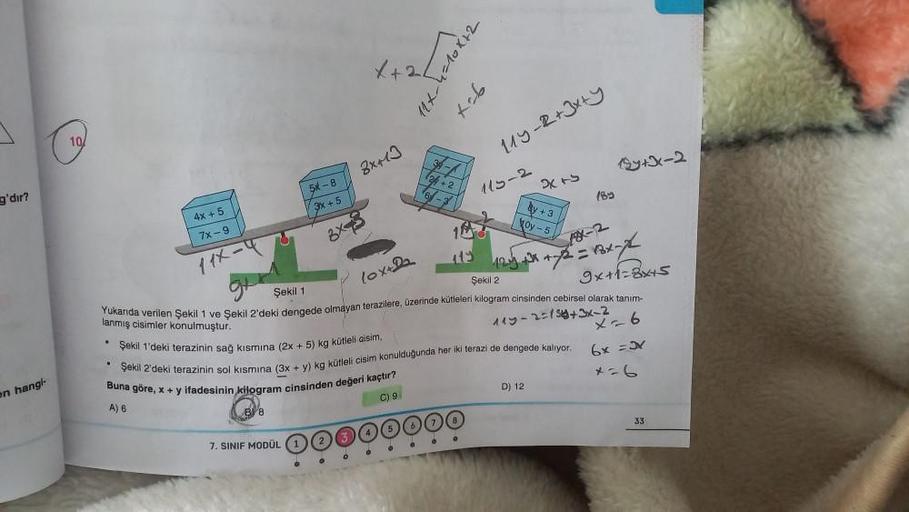 x+2
11x-4=10x+2
x=6
10
g'dır?
4x + 5
7x – 9
5x – 8
3x + 5
8x+13
11x-4
9x+1
10x+2
Şekil 1
2y + 2
8y + 3
10y – 5
11y-2+3x+y
11y-2
3x+y
18y
11y
9x+1=8x+5
Şekil 2
Yukarıda verilen Şekil 1 ve Şekil 2'deki dengede olmayan terazilere, üzerinde kütleleri kilogram cinsinden cebirsel olarak tanım-
lanmış cisimler konulmuştur.
x=6
6x =
x=6
• Şekil 1'deki terazinin sağ kısmına (2x + 5) kg kütleli cisim,
• Şekil 2'deki terazinin sol kısmına (3x + y) kg kütleli cisim konulduğunda her iki terazi de dengede kalıyor.
en hangi-
Buna göre, x + y ifadesinin kilogram cinsinden değeri kaçtır?
A) 6
B) 8
C) 9
D) 12
33
7. SINIF MODÜL 1 2 3 4 5 6 7 8